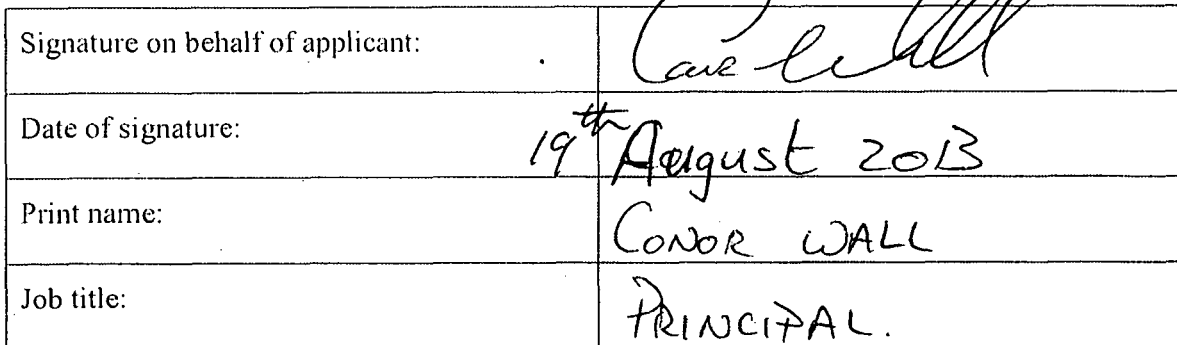 Signature on behalf of applicant:
Date of signature: 19th August 2013
Print name: CONOR WALL
Job title: PRINCIPAL.